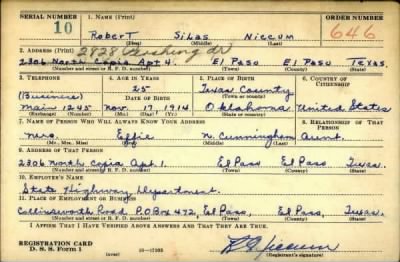 SERIAL NUMBER 1. NAME (Print) ORDER NUMBER
10 ROBERT SILAS NICCUM 646
(First) (Middle) (Last)
2. ADDRESS (Print) 2828 Pershing dr
2306 North Copia Apt 4. El Paso El Paso Texas.
(Number and street or R. F. D. number) (Town) (County) (State)
3. TELEPHONE 4. AGE IN YEARS 5. PLACE OF BIRTH 6. COUNTRY OF CITIZENSHIP
(Business) 25 Texas County
DATE OF BIRTH (Town or county)
Main 1245 Nov. 17 1914 Oklahoma United States
(Exchange) (Number) (Mo.) (Day) (Yr.) (State or country)
7. NAME OF PERSON WHO WILL ALWAYS KNOW YOUR ADDRESS 8. RELATIONSHIP OF THAT PERSON
Mrs. Effie N. Cunningham Aunt.
(Mr., Mrs., Miss) (First) (Middle) (Last)
9. ADDRESS OF THAT PERSON
2306 North Copia Apt. 1. El Paso El Paso Texas.
(Number and street or R. F. D. number) (Town) (County) (State)
10. EMPLOYER'S NAME
State Highway Department.
11. PLACE OF EMPLOYMENT OR BUSINESS
Collinsworth Road P.O Box 472, El Paso, El Paso, Texas.
(Number and street or R. F. D. number) (Town) (County) (State)
I AFFIRM THAT I HAVE VERIFIED ABOVE ANSWERS AND THAT THEY ARE TRUE.
REGISTRATION CARD
D. S. S. Form 1 (over) R S Niccum
(Registrant's signature)